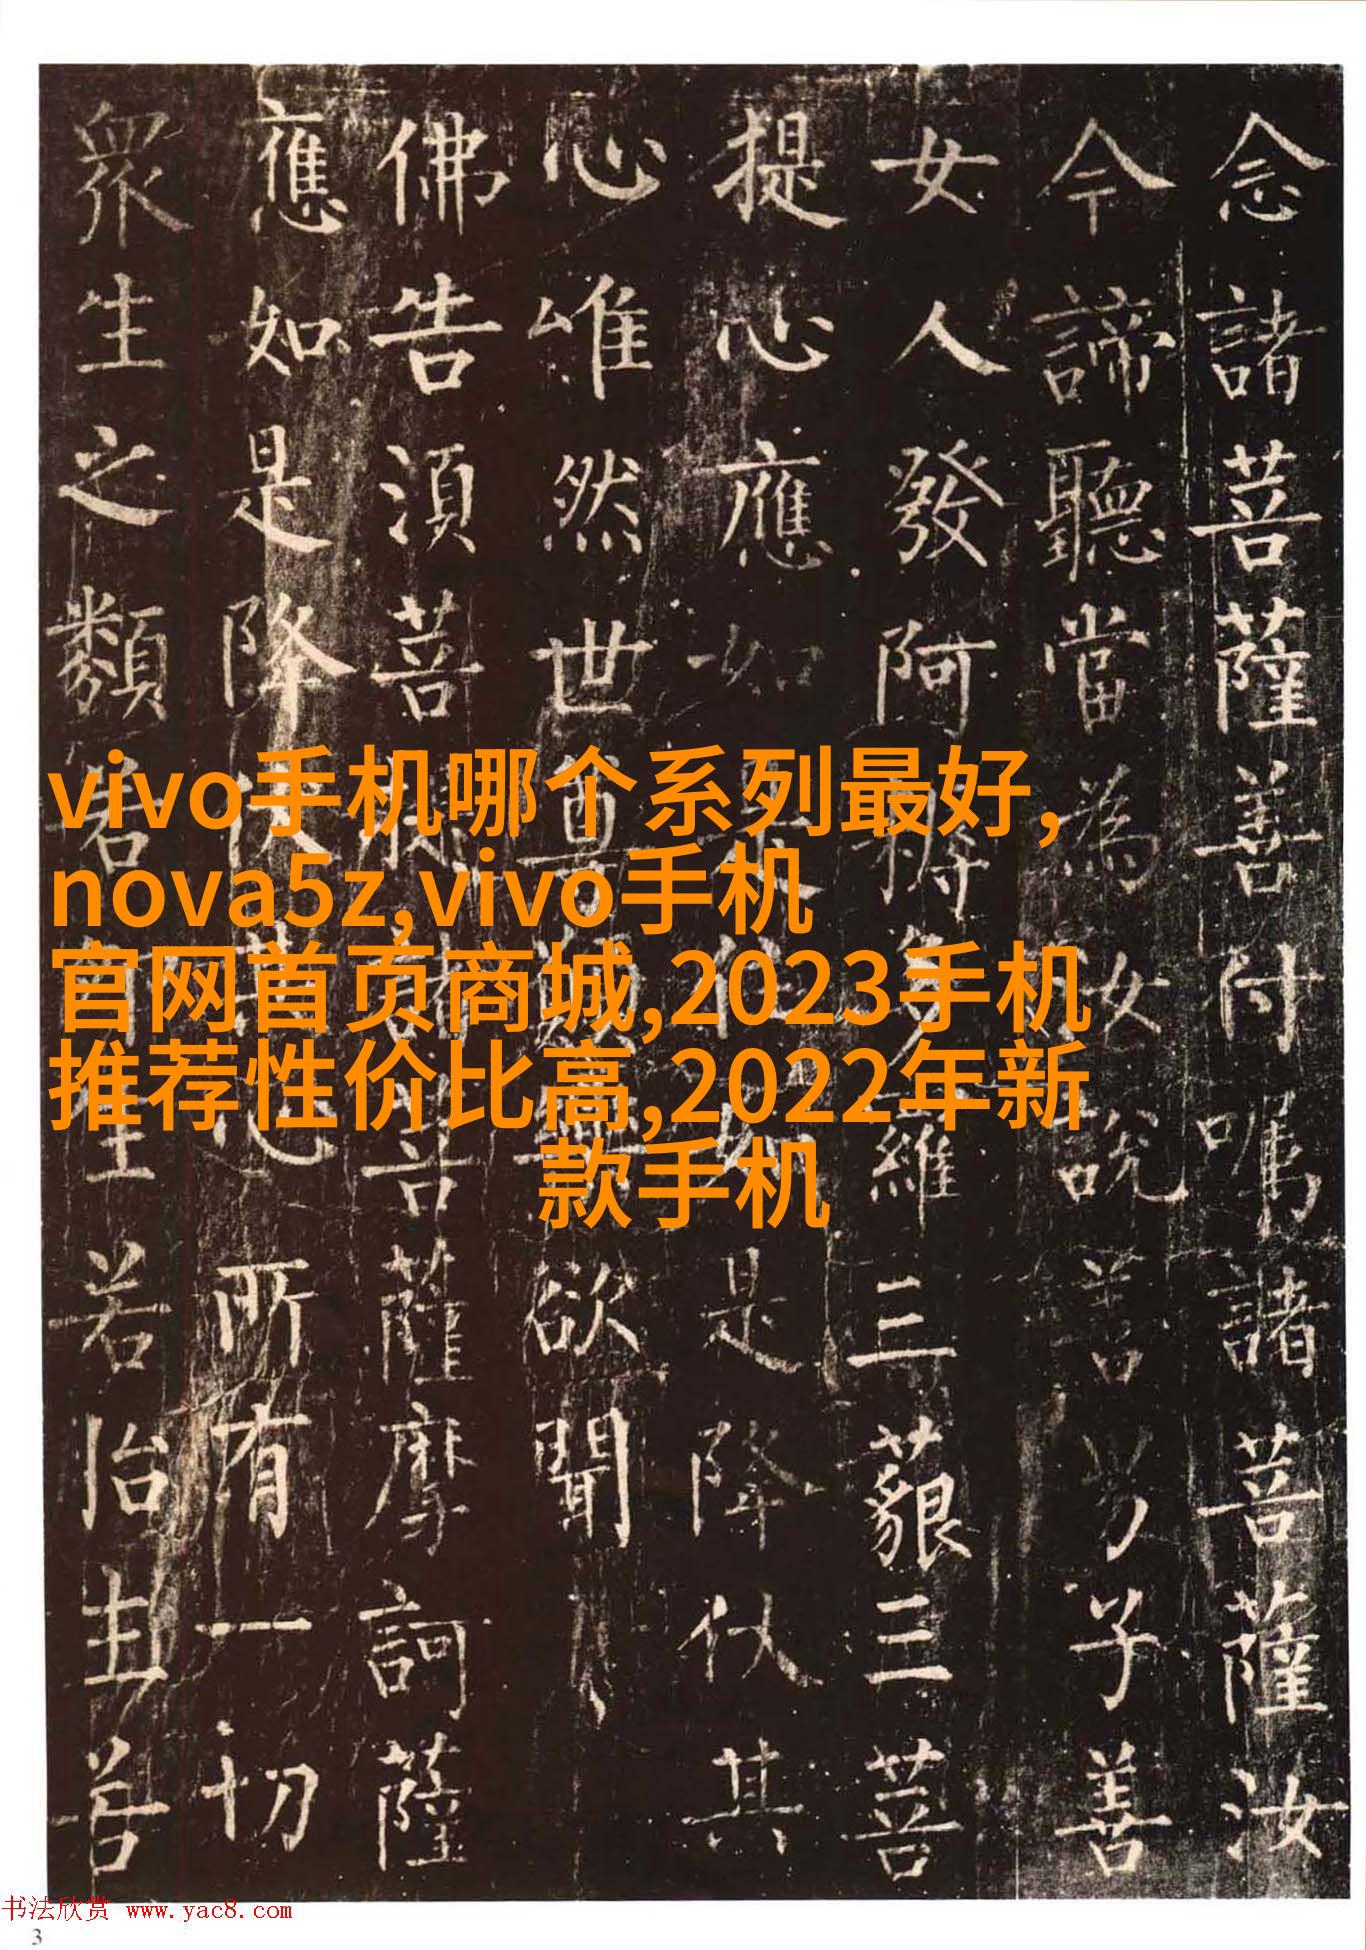 念諸菩薩善付囑諸菩薩汝
今諦聽當為汝說善男子善
女人發阿耨多羅三藐三菩
提心應如住是降伏其
心唯然世尊願欲聞
佛告須菩提諸菩薩摩訶薩
應如是降伏其心所有一切
眾生之類若生若胎生若
vivo手机哪个系列最好,
nova5z,vivo手机
官网首页商城,2023手机
推荐性价比高,2022年新
款手机
书法欣赏 www.yac8.com
3